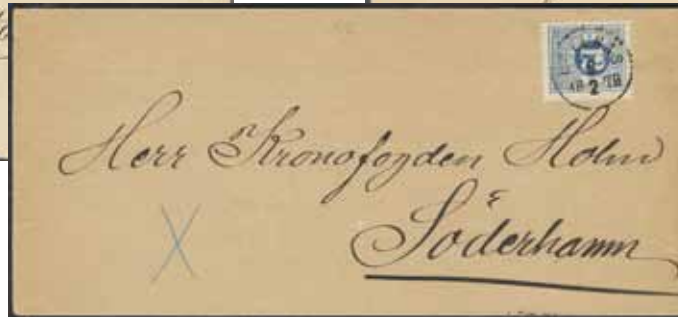 Herr Kronofogden Holm
Söderhamn
2